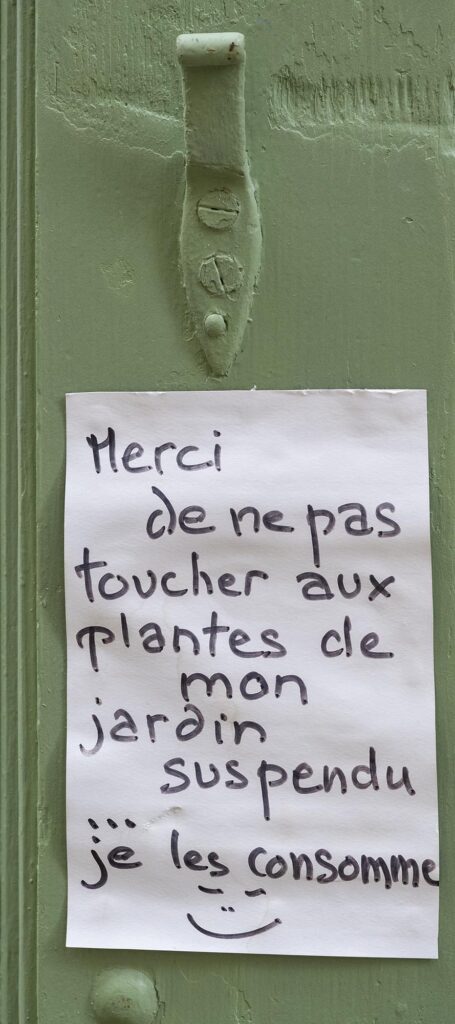 Merci
de ne pas
toucher aux
plantes de
mon
jardin
suspendu
...
je les consomme